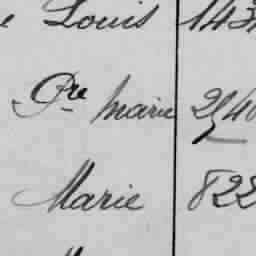 Louis 143
Pre Marie 2540
Marie 822